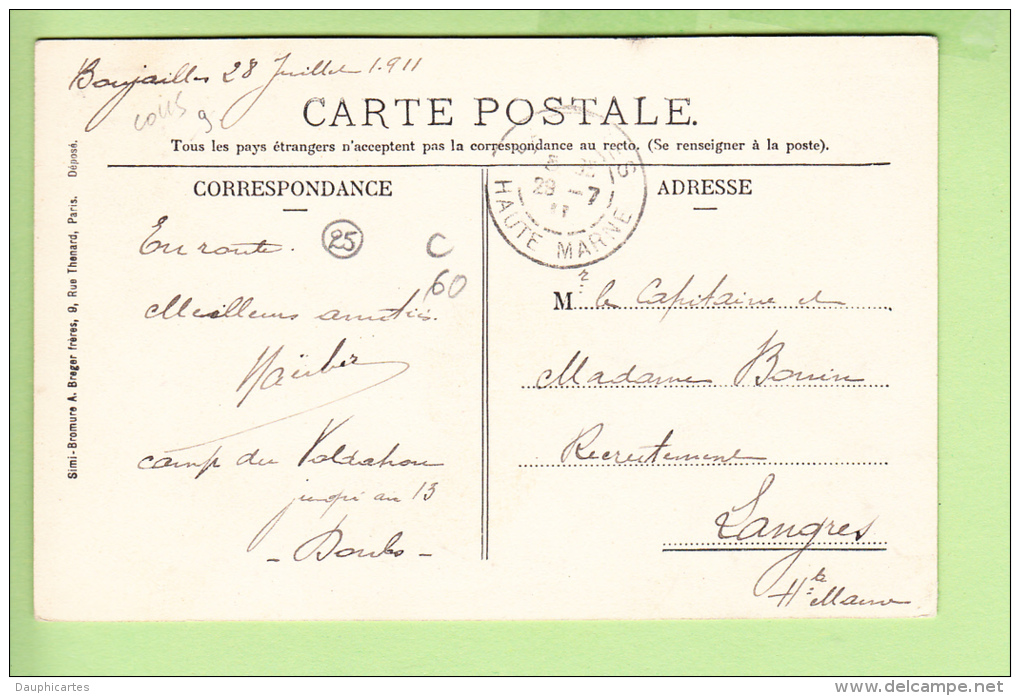 Boujailles 28 Juillet 1911
CARTE POSTALE.
Tous les pays étrangers n'acceptent pas la correspondance au recto. (Se renseigner à la poste).
CORRESPONDANCE
ADRESSE
29 - 7
HAUTE MARNE
Simi-Bromure A. Breger frères, 9, Rue Thenard, Paris. Déposé.
En route.
25
C
60
Meilleurs amitiés.
camp du Valdahon
jusqu'au 13
- Doubs -
Mr le Capitaine et
Madame Bonin
Recrutement
Langres
Hte Marne
Dauphicartes
delcampe.net